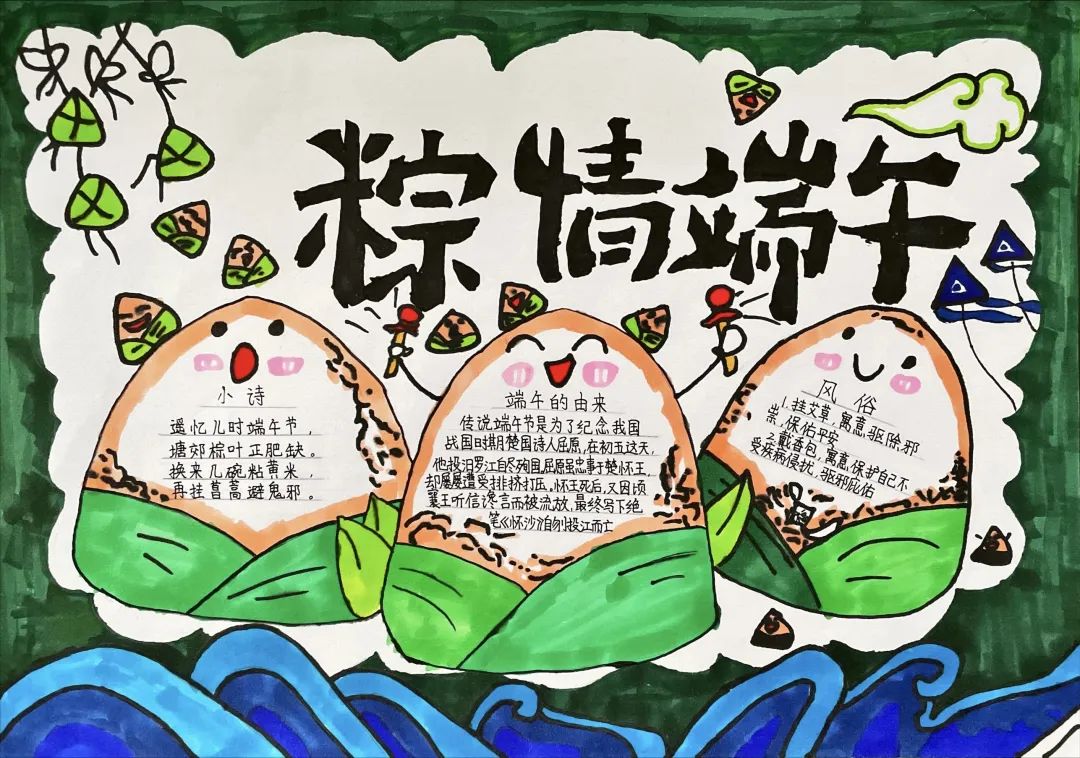 粽情端午
小诗
遥忆儿时端午节，
塘郊粽叶正肥缺。
换来几碗粘黄米，
再挂菖蒿避鬼邪。
端午的由来
传说端午节是为了纪念我国
战国时期楚国诗人屈原，在初五这天，
他投汨罗江自尽殉国，屈原虽忠事于楚怀王，
却屡屡遭受排挤打压，怀王死后，又因顷
襄王听信谗言而被流放，最终写下绝
笔《怀沙》自刎投江而亡
风俗
1.挂艾草，寓意驱除邪
祟，保佑平安
2.戴香包，寓意，保护自己不
受疾病侵扰，驱邪庇佑